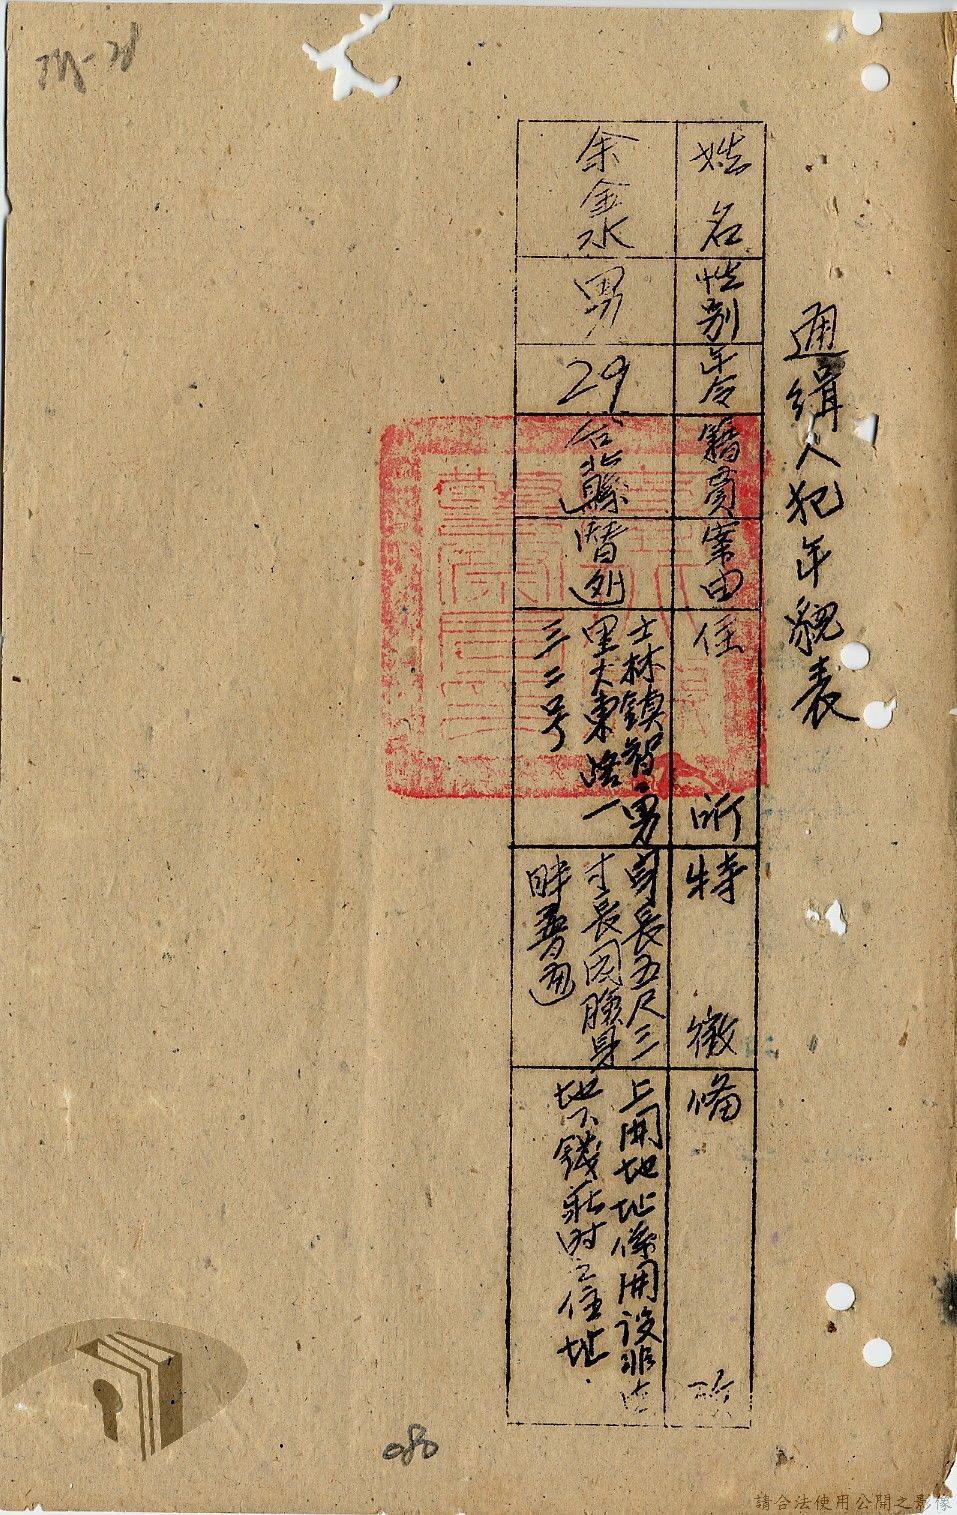 通緝人犯年貌表
姓名
性別
年令
籍貫
案由
住所
特徵
備攷
余金水
男
29
台北縣
潛逃
士林鎮智勇
里大東路一
三二号
身長五尺三
寸長因臉身
胖普通
上開地址係開設非法
地下錢莊时之住址
080
請合法使用公開之影像